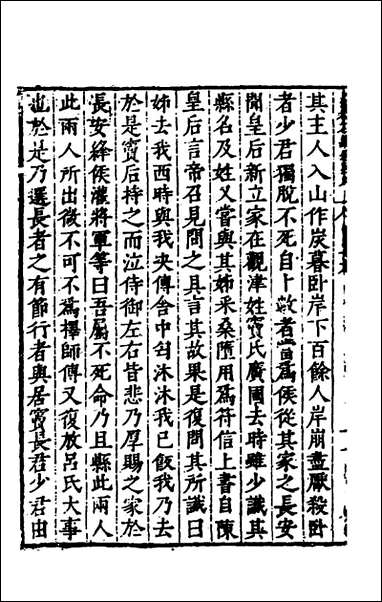 其主人入山作炭暮卧岸下百餘人岸崩盡厭殺卧
者少君獨脫不死自卜數者當爲侯從其家之長安
聞皇后新立家在觀津姓竇氏廣國去時雖少識其
縣名及姓又嘗與其姊采桑墮用爲符信上書自陳
皇后言帝召見問之具言其故果是復問其所識曰
姊去我西時與我夬傳舍中匄沐沐我已飯我乃去
於是竇后持之而泣侍御左右皆悲乃厚賜之家於
長安絳侯灌將軍等曰吾屬不死命乃且縣此兩人
此兩人所出微不可不爲擇師傅又復放呂氏大事
也於是乃選長者之有節行者與居竇長君少君由